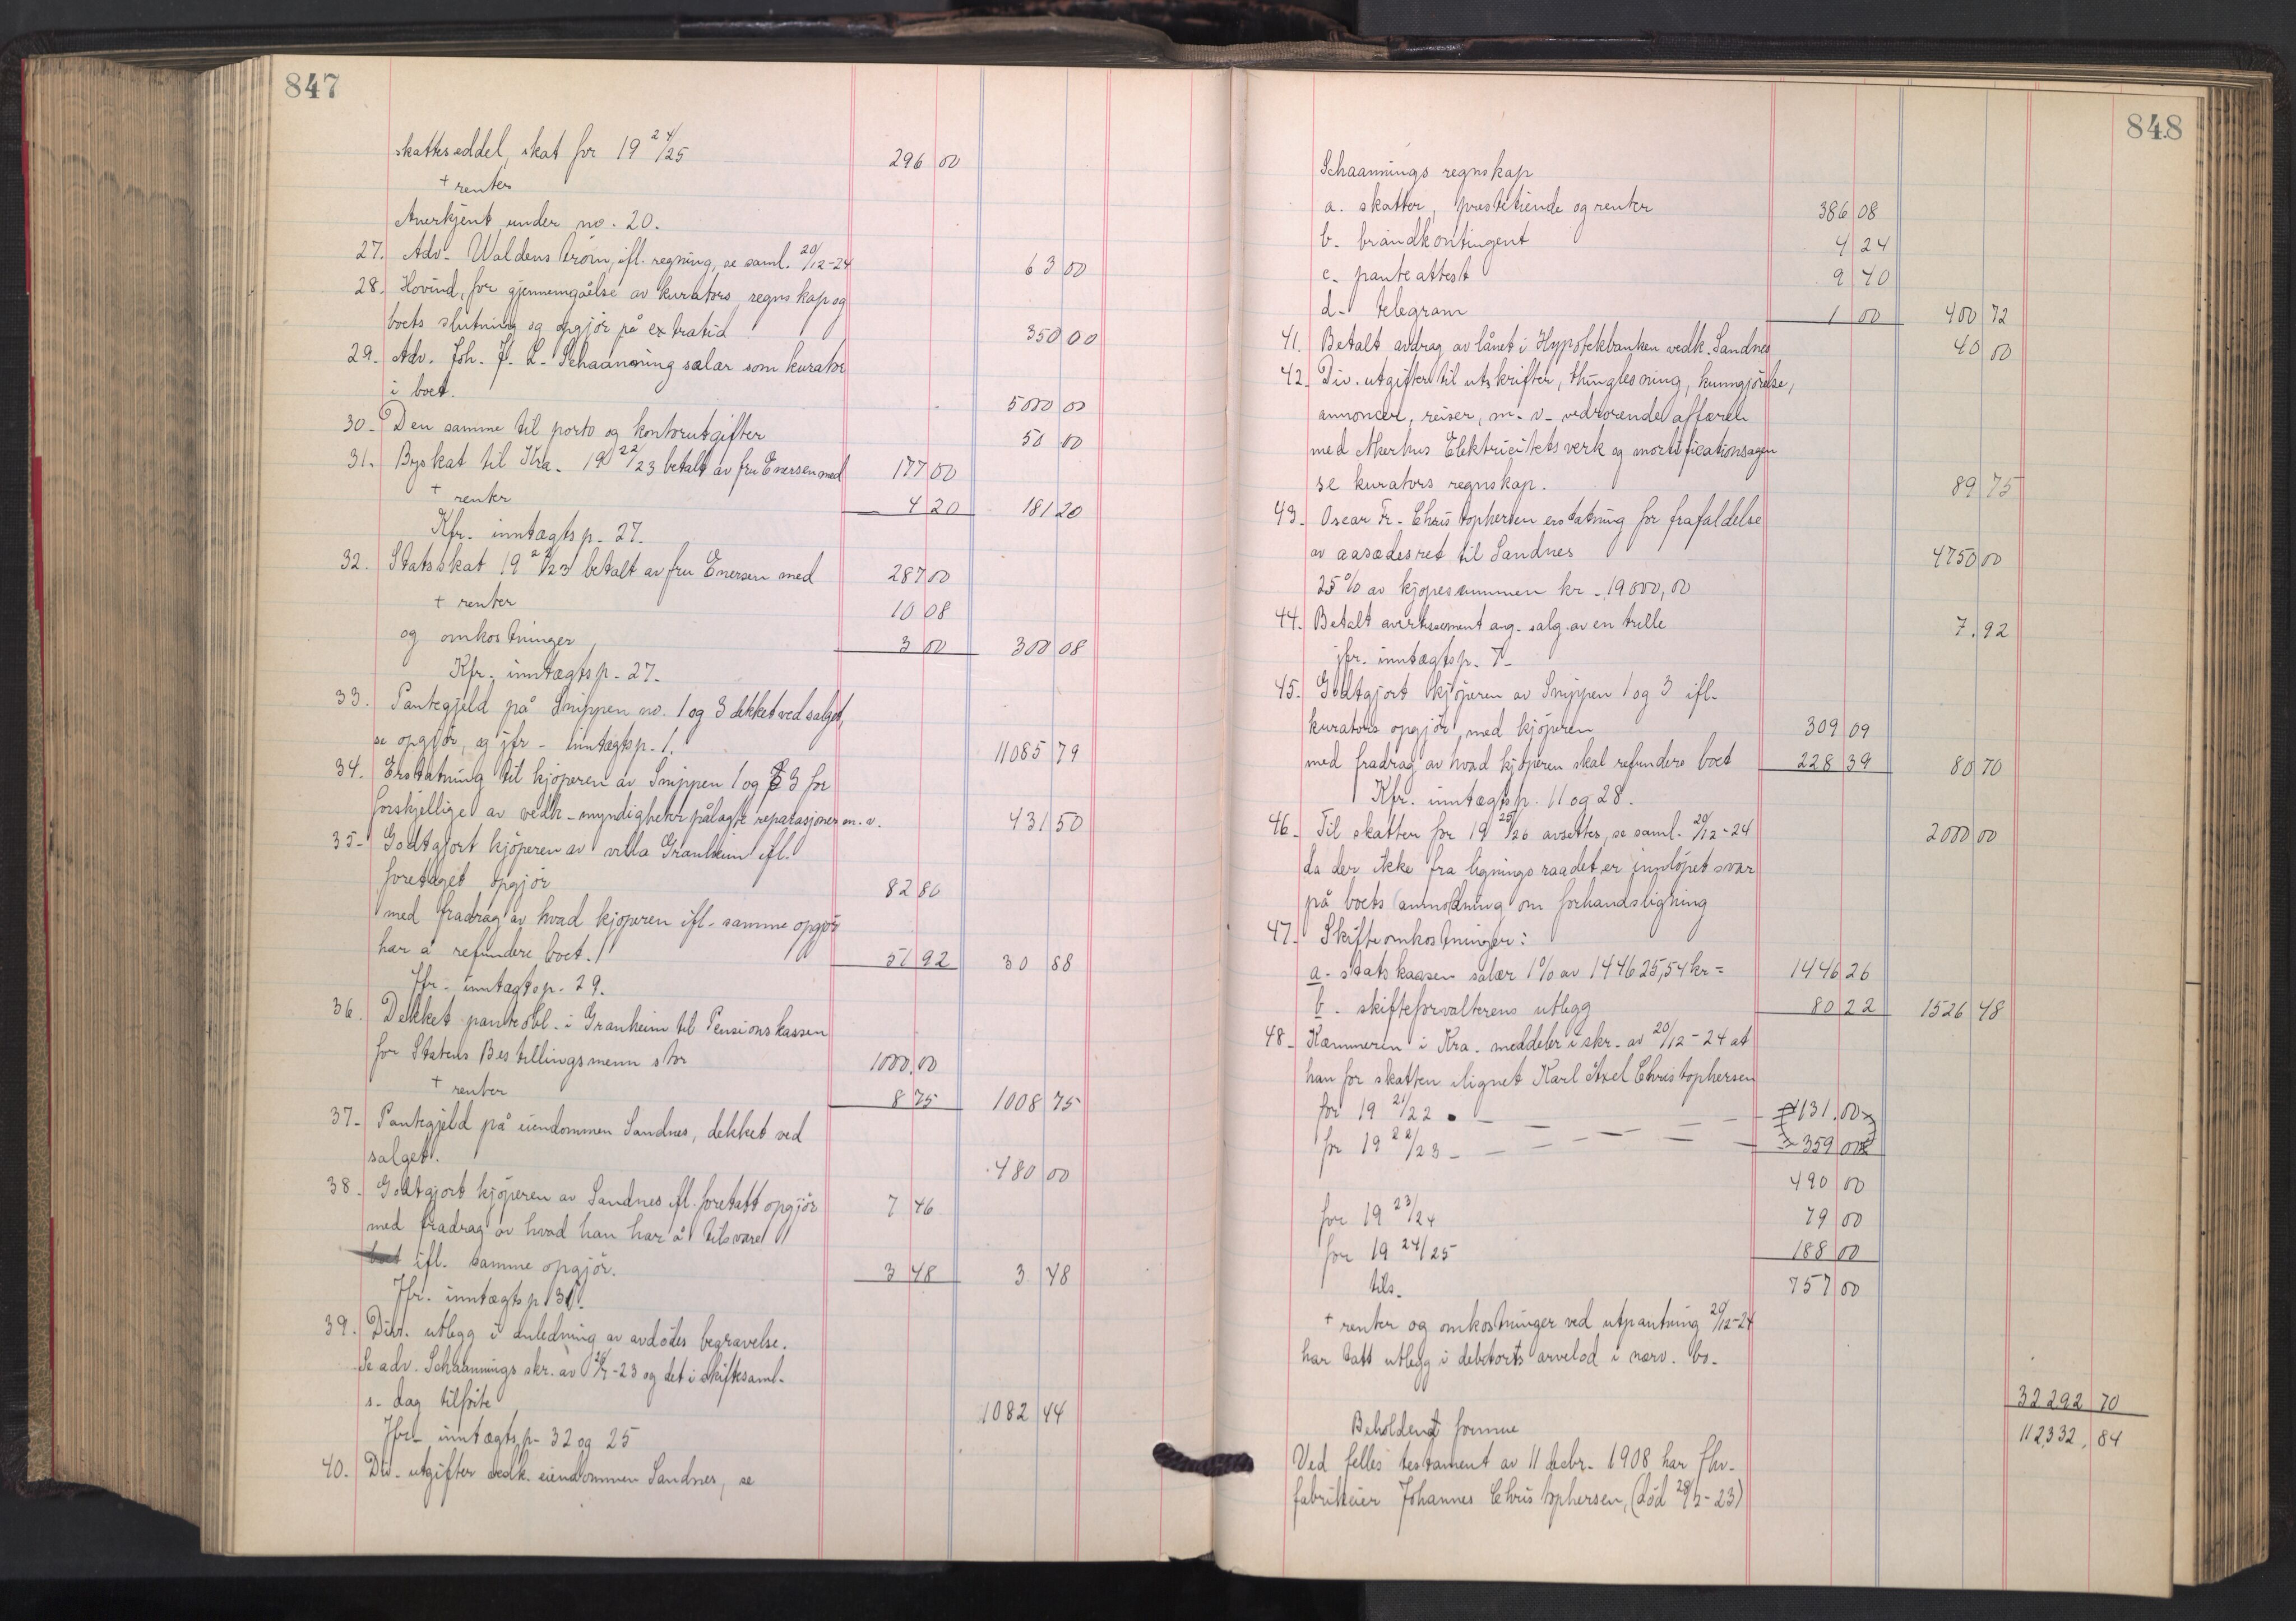 847
skatteseddel, skat for 19 24/25 296 00
+ renter
Anerkjent under no. 20.
27. Adv. Waldenström, ifl. regning, se saml. 20/12-24 63 00
28. Hovind, for gjennemgåelse av kurators regnskap og
boets slutning og opgjör på extratid 350 00
29. Adv. Joh. F. L. Schaanning salær som kurator
i boet. 5000 00
30. Den samme til porto og kontorutgifter 50 00
31. Byskat til Kra. 19 22/23 betalt av fru Enersen med 177 00
+ renter 4 20 181 20
Kfr. inntægtsp. 27.
32. Statsskat 19 22/23 betalt av fru Enersen med 287 00
+ renter 10 08
og omkostninger 3 00 300 08
Kfr. inntægtsp. 27.
33. Pantegjeld på Snippen no. 1 og 3 dekket ved salget,
se opgjör, og jfr. inntægtsp. 1. 11085 79
34. Erstatning til kjöperen av Snippen 1 og 3 for
forskjellige av vedk. myndigheter pålagte reparasjoner m.v. 431 50
35. Godtgjort kjöperen av villa Granheim ifl.
foretaget opgjör 82 80
med fradrag av hvad kjöperen ifl. samme opgjör
har å refundere boet. 51 92 30 88
Jfr. inntægtsp. 29.
36. Dekket panteobl. i Granheim til Pensionskassen
for Statens Bestillingsmenn stor 1000.00
+ renter 8 75 1008 75
37. Pantegjeld på eiendommen Sandnes, dekket ved
salget. 480 00
38. Godtgjort kjöperen av Sandnes ifl. foretatt opgjör 7 46
med fradrag av hvad han har å tilsvare
boet ifl. samme opgjör. 3 48 3 48
Jfr. inntægtsp. 31.
39. Div. utlegg i anledning av avdödes begravelse.
Se adv. Schaannings skr. av -23 og det i skiftesaml.
s. dag tilförte 1082 44
Jfr. inntægtsp. 32 og 25
40. Div. utgifter vedk. eiendommen Sandnes, se
848
Schaannings regnskap
a. skatter, prestetiende og renter 386 08
b. brandkontingent 4 24
c. panteattest 9 40
d. telegram 1 00 400 72
41. Betalt avdrag av lånet i Hypotekbanken vedk. Sandnes 40 00
42. Div. utgifter til utskrifter, thinglesning, kunngjörelse,
annoncer, reiser, m.v. vedrörende affæren
med Akerhus Elektricitetsverk og mortificationsagen
se kurators regnskap. 89 75
43. Oscar Fr. Christophersen erstatning for frafaldelse
av aasædesret til Sandnes 4750 00
25% av kjöpesummen kr. 19000,00
44. Betalt avertissement ang. salg av en trille 7.92
jfr. inntægtsp. 7.
45. Godtgjort kjöperen av Snippen 1 og 3 ifl.
kurators opgjör med kjöperen 309 09
med fradrag av hvad kjöperen skal refundere boet 228 39 80 70
Kfr. inntægtsp. 11 og 28.
46. Til skatter for 19 25/26 avsettes, se saml. 20/12-24 2000 00
da der ikke fra ligningsraadet er innlöpet svar
på boets anmodning om forhandsligning
47. Skifteomkostninger:
a. statskassen salær 1% av 144625,54 kr = 1446 26
b. skifteforvalterens utlegg 80 22 1526 48
48. Kæmneren i Kra. meddeler i skr. av 20/12-24 at
han for skatten ilignet Karl Axel Christophersen
for 19 21/22 131.00
for 19 22/23 359 00
490 00
for 19 23/24 79 00
for 19 24/25 188 00
tils. 757 00
+ renter og omkostninger ved utpantning 20/12-24
har tatt utlegg i debitors arvelod i nærv. bo.
32292 70
Beholdend formue 112332,84
Ved felles testament av 11 decbr. 1908 har fhv.
fabrikeier Johannes Christophersen, (död -23)